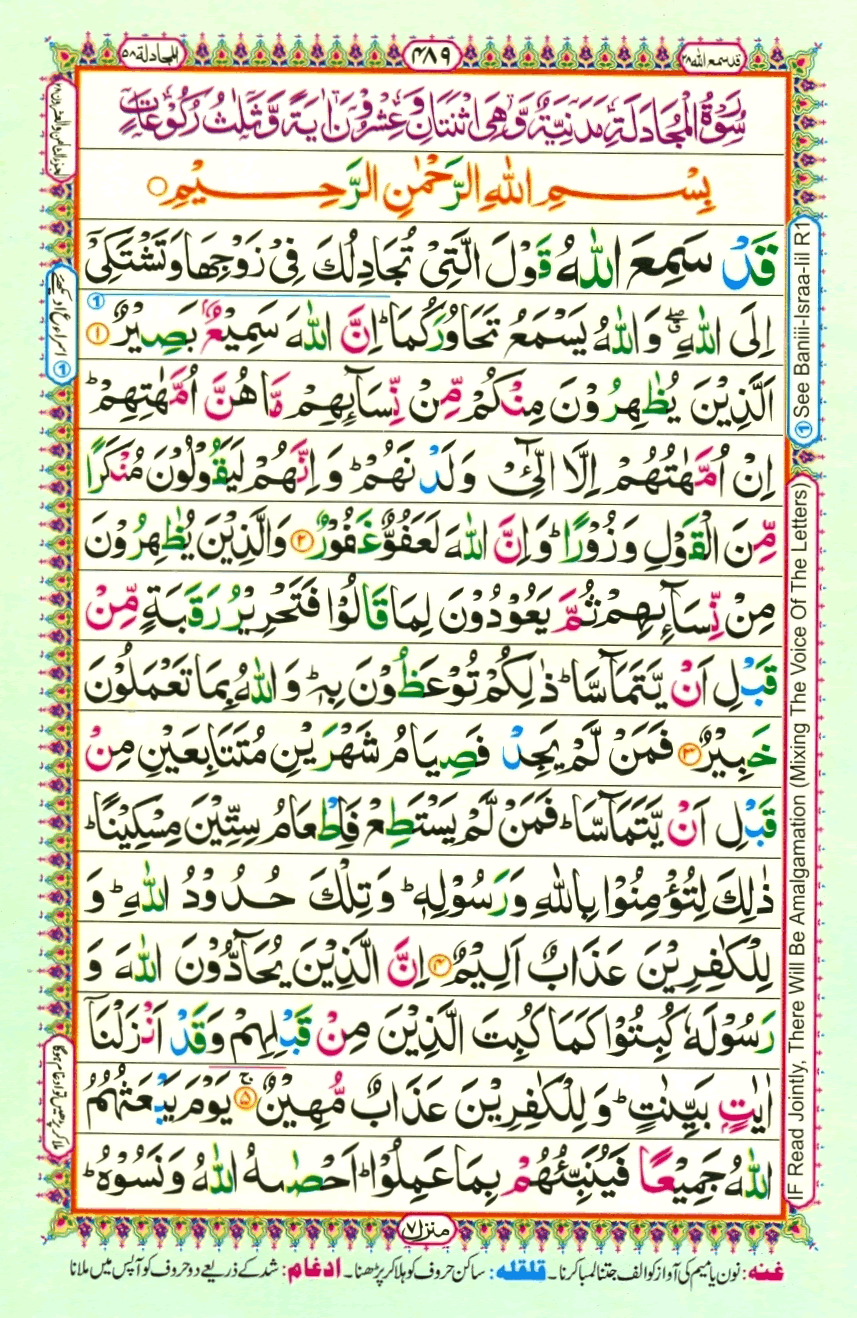 قدسمع الله ۲۸
۴۸۹
المجادلة ۵۸
سُوْرَةُ الْمُجَادَلَةِ مَدَنِيَّةٌ وَّهِىَ اثْنَتَانِ وَعِشْرُوْنَ اٰيَةً وَّثَلٰثُ رُكُوْعَاتٍ
بِسْمِ اللهِ الرَّحْمٰنِ الرَّحِيْمِ
قَدْ سَمِعَ اللّٰهُ قَوْلَ الَّتِىْ تُجَادِلُكَ فِىْ زَوْجِهَا وَتَشْتَكِىْٓ
اِلَى اللّٰهِ ۖ وَاللّٰهُ يَسْمَعُ تَحَاوُرَكُمَا ؕ اِنَّ اللّٰهَ سَمِيْعٌۢ بَصِيْرٌ ①
اَلَّذِيْنَ يُظٰهِرُوْنَ مِنْكُمْ مِّنْ نِّسَآىِٕهِمْ مَّا هُنَّ اُمَّهٰتِهِمْ ؕ
اِنْ اُمَّهٰتُهُمْ اِلَّا الّٰٓـِٔىْ وَلَدْنَهُمْ ؕ وَاِنَّهُمْ لَيَقُوْلُوْنَ مُنْكَرًا
مِّنَ الْقَوْلِ وَزُوْرًا ؕ وَاِنَّ اللّٰهَ لَعَفُوٌّ غَفُوْرٌ ② وَالَّذِيْنَ يُظٰهِرُوْنَ
مِنْ نِّسَآىِٕهِمْ ثُمَّ يَعُوْدُوْنَ لِمَا قَالُوْا فَتَحْرِيْرُ رَقَبَةٍ مِّنْ
قَبْلِ اَنْ يَّتَمَآسَّا ؕ ذٰلِكُمْ تُوْعَظُوْنَ بِهٖ ؕ وَاللّٰهُ بِمَا تَعْمَلُوْنَ
خَبِيْرٌ ③ فَمَنْ لَّمْ يَجِدْ فَصِيَامُ شَهْرَيْنِ مُتَتَابِعَيْنِ مِنْ
قَبْلِ اَنْ يَّتَمَآسَّا ؕ فَمَنْ لَّمْ يَسْتَطِعْ فَاِطْعَامُ سِتِّيْنَ مِسْكِيْنًا ؕ
ذٰلِكَ لِتُؤْمِنُوْا بِاللّٰهِ وَرَسُوْلِهٖ ؕ وَتِلْكَ حُدُوْدُ اللّٰهِ ؕ وَ
لِلْكٰفِرِيْنَ عَذَابٌ اَلِيْمٌ ④ اِنَّ الَّذِيْنَ يُحَآدُّوْنَ اللّٰهَ وَ
رَسُوْلَهٗ كُبِتُوْا كَمَا كُبِتَ الَّذِيْنَ مِنْ قَبْلِهِمْ وَقَدْ اَنْزَلْنَآ
اٰيٰتٍۭ بَيِّنٰتٍ ؕ وَلِلْكٰفِرِيْنَ عَذَابٌ مُّهِيْنٌ ⑤ۚ يَوْمَ يَبْعَثُهُمُ
اللّٰهُ جَمِيْعًا فَيُنَبِّئُهُمْ بِمَا عَمِلُوْا ؕ اَحْصٰىهُ اللّٰهُ وَنَسُوْهُ ؕ
① See Baniii-Israa-Iil R1
IF Read Jointly, There Will Be Amalgamation (Mixing The Voice Of The Letters)
منزل ۷
غنہ: نون یا میم کی آواز کو الف جتنا لمبا کرنا۔ قلقلہ: ساکن حروف کو ہلا کر پڑھنا۔ ادغام: شد کے ذریعے دو حروف کو آپس میں ملانا